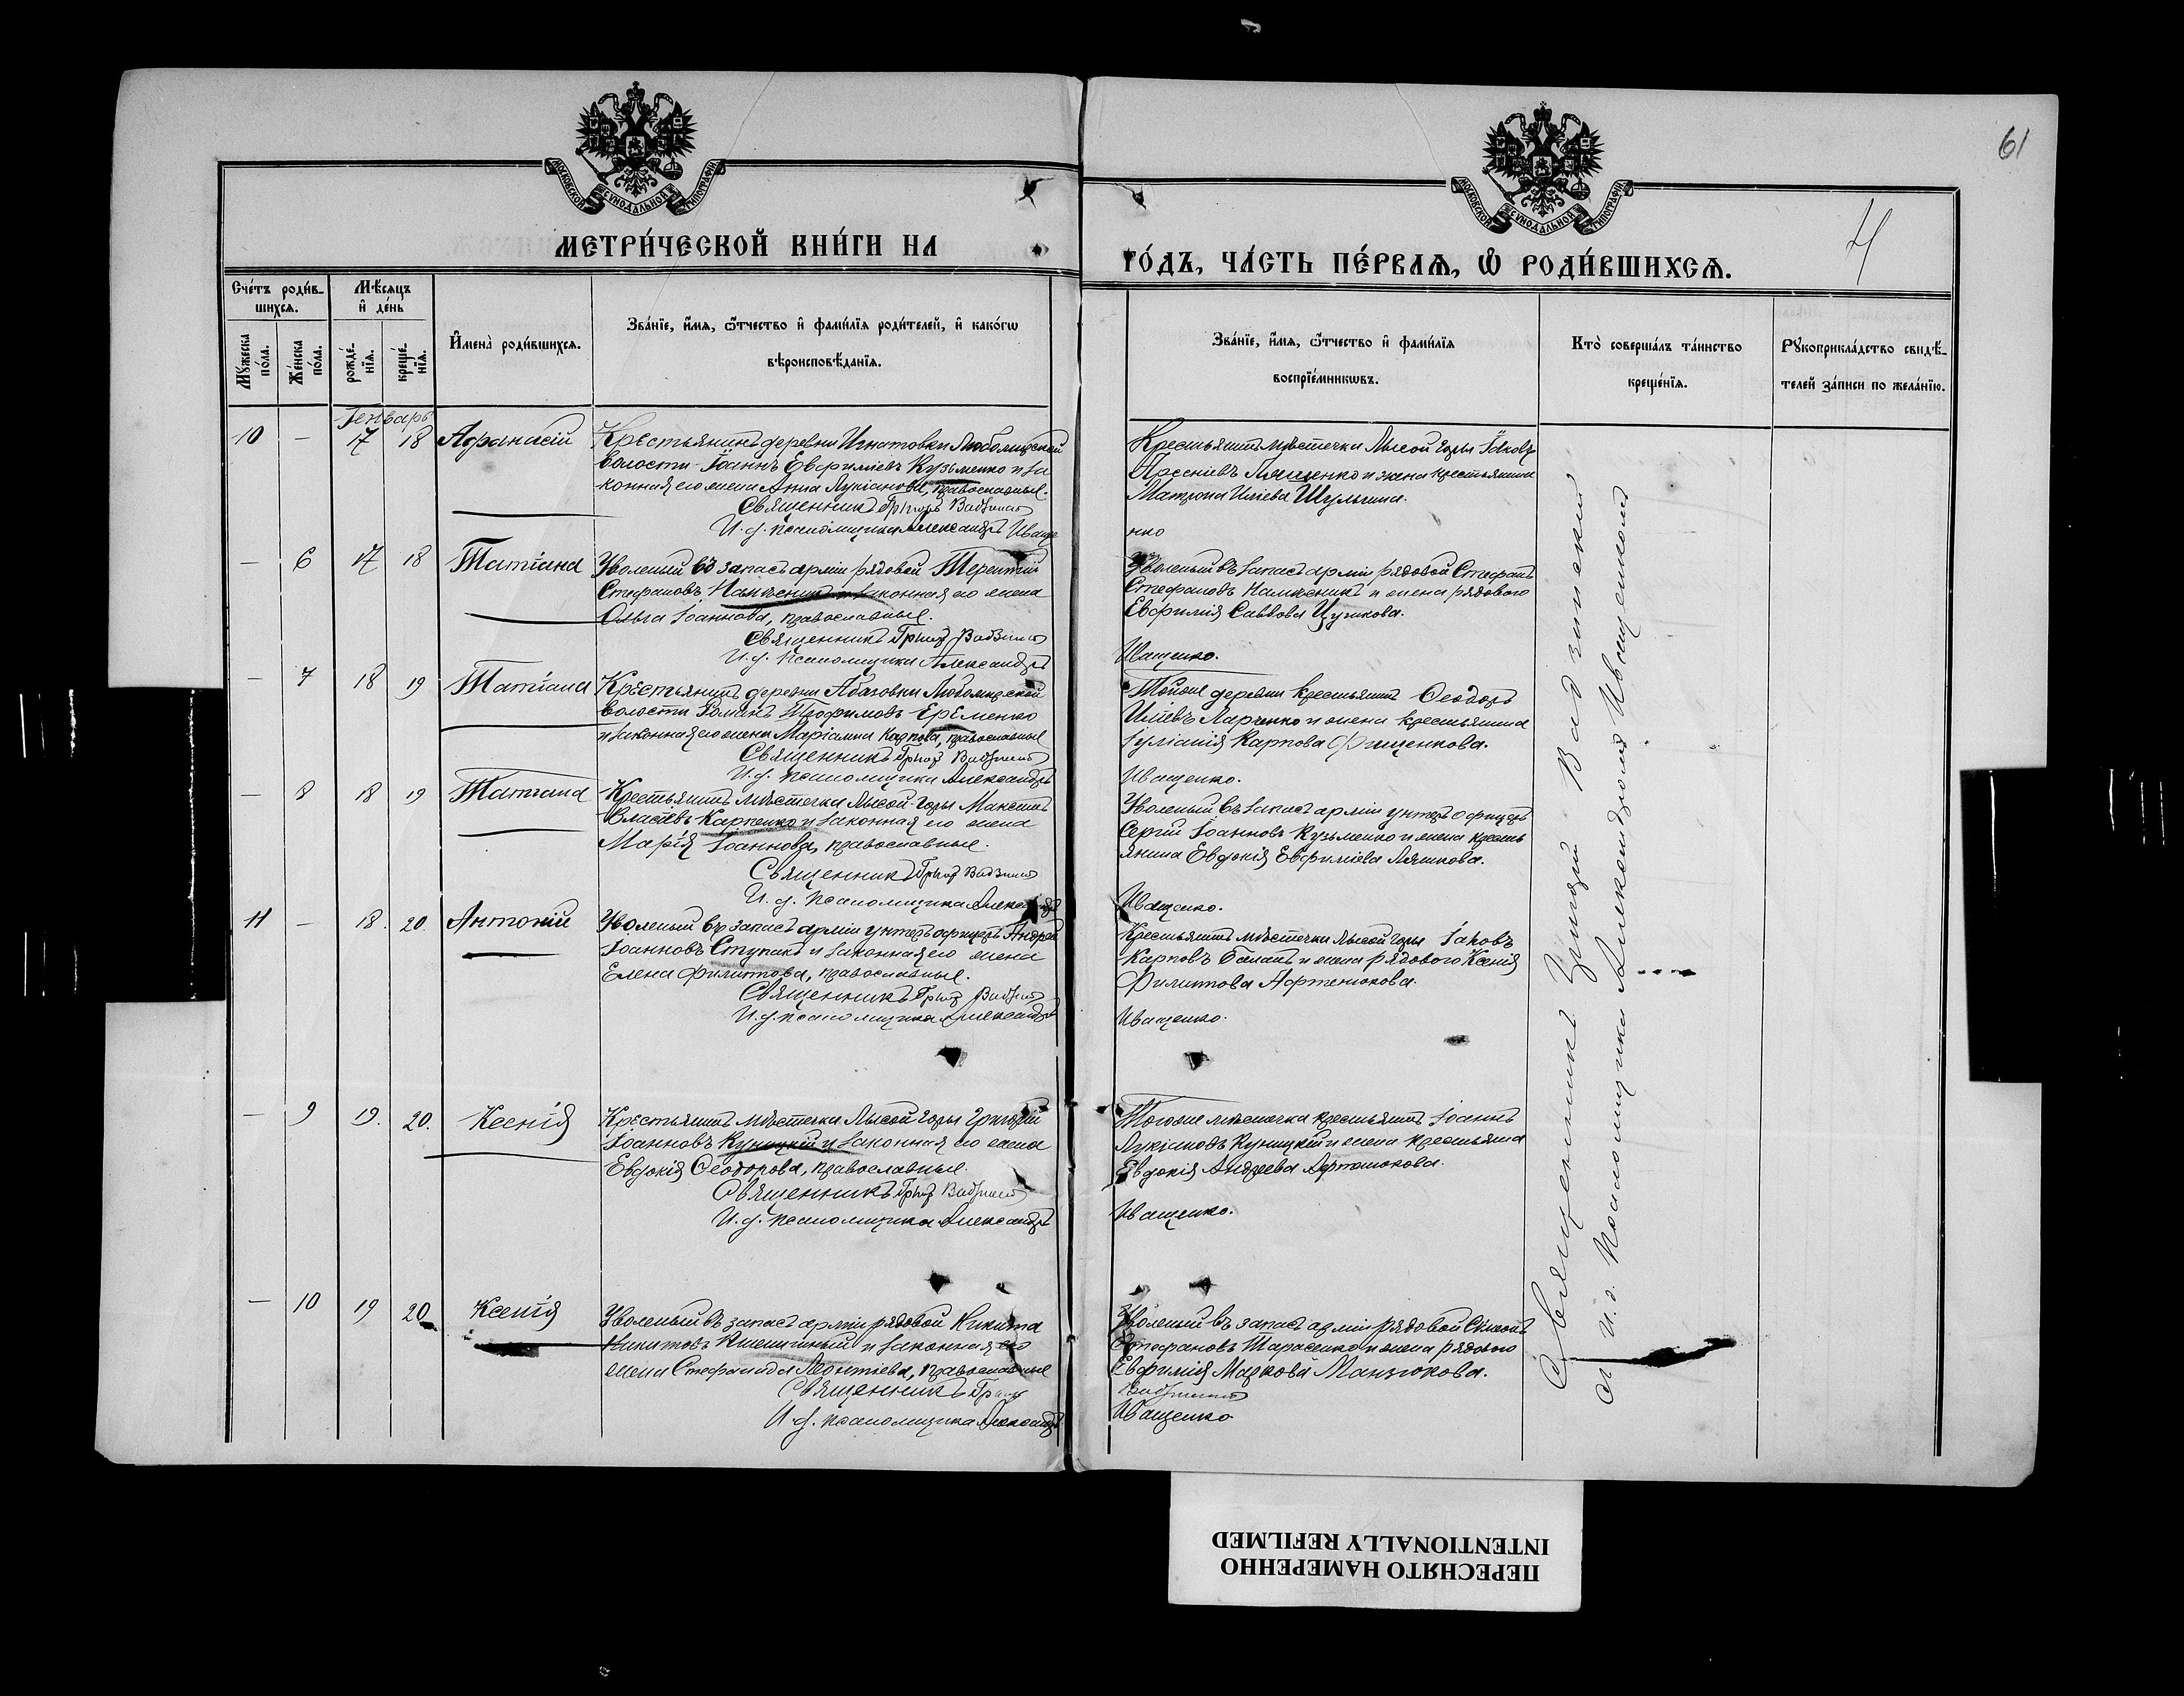 61
4
МОСКОВСКОЙ СѴНОДАЛЬНОЙ ТИПОГРАФІИ
МОСКОВСКОЙ СѴНОДАЛЬНОЙ ТИПОГРАФІИ
МЕТРИ́ЧЕСКОЙ КНИ́ГИ НА
ГО́ДЪ, ЧА́СТЬ ПЕ́РВАѦ, Ѽ РОДИ́ВШИХСѦ.
Сче́тъ роди́в-
шихсѧ.
Мꙋжеска по́ла.
Же́нска по́ла.
Мѣ́сѧцъ
и҆ де́нь
рожде́-
нїѧ.
креще́-
нїѧ.
И҆мена̀ роди́вшихсѧ.
Зва́нїе, и҆́мѧ, ѻ҆́тчество и҆ фами́лїѧ роди́телей, и҆ како́гѡ
вѣроисповѣ́данїѧ.
Зва́нїе, и҆́мѧ, ѻ҆́тчество и҆ фами́лїѧ
воспрїе́мникѡвъ.
Кто̀ соверша́лъ та́инство
креще́нїѧ.
Рꙋкоприкла́дство свидѣ́-
телей за́писи по жела́нїю.
Генварь
10 — 17 18 Афанасій
Крестьянинъ деревни Игнатовки Любомирской
волости Іоаннъ Евфиміевъ Кузьменко и за
конная его жена Анна Лукіанова, православные.
Священникъ Григорій Вадзинскій
И. д. псаломщика Александръ Иваще
Крестьянинъ мѣстечка Лысой Горы Іаковъ
Арсеніевъ Пащенко и жена крестьянина
Матрона Иліева Шульгина.
нко
— 6 17 18 Татіана
Уволеный въ запасъ арміи рядовой Терентій
Стефановъ и законная его жена
Ольга Іоаннова, православные.
Священникъ Григ. Вадзинскій
И. д. псаломщика Александръ
Уволеный въ запасъ арміи рядовой Стефанъ
Стефановъ и жена рядового
Евфимія Саввова Цушкова.
Иващенко.
— 7 18 19 Татіана
Крестьянинъ деревни Абазовки Любомирской
волости Романъ Трофимовъ Еременко
и законная его жена Маріамна Карпова, православные
Священникъ Григ. Вадзинскій
И. д. псаломщика Александръ
Тойже деревни крестьянинъ Ѳеодоръ
Иліевъ Ларченко и жена крестьянина
Іуліанія Карпова Фищенкова.
Иващенко.
— 8 18 19 Татіана
Крестьянинъ мѣстечка Лысой-Горы Максимъ
Власіевъ Карпенко и законная его жена
Марія Іоаннова, православные.
Священникъ Григ Вадзинскій
И. д. псаломщика Александръ
Уволеный въ запасъ арміи унтеръ офицеръ
Сергій Іоанновъ Кузьменко и жена кресть
янина Евдокія Евфиміева Ляшкова.
Иващенко.
11 — 18. 20. Антоній
Уволеный въ запасъ арміи унтеръ офицеръ Андрей
Іоанновъ Ступакъ и законная его жена
Елена Филиппова, православные.
Священникъ Григ Вадзинскій
И. д. псаломщика Александръ
Крестьянинъ мѣстечка Лысой Горы Іаковъ
Карповъ и жена рядового Ксенія
Филиппова Афтенюкова.
Иващенко.
— 9 19. 20. Ксенія
Крестьянинъ мѣстечка Лысой Горы Григорій
Іоанновъ Куницкій и законная его жена
Евдокія Ѳеодорова, православные.
Священникъ Григ Вадзинскій
И. д. псаломщика Александръ
Тогоже мѣстечка крестьянинъ Іоаннъ
Лукіановъ Куницкій и жена крестьянина
Евдокія Андреева Афтенюкова.
Иващенко.
— 10 19 20 Ксенія
Уволеный въ запасъ арміи рядовой Никита
Никитовъ Пшеничный и законная его
жена Стефанида Леонтіева, православные
Священникъ Григ
И. д. псаломщика Александръ
Уволеный въ запасъ арміи рядовой Симеонъ
Стефановъ Тарасенко и жена рядового
Евфимія Маркова Манзюкова.
Вадзинскій
Иващенко
Священникъ Григорій Вадзинскій
и и. д. Псаломщика Александромъ Иващенкомъ
ПЕРЕСНЯТО НАМЕРЕННО
INTENTIONALLY REFILMED